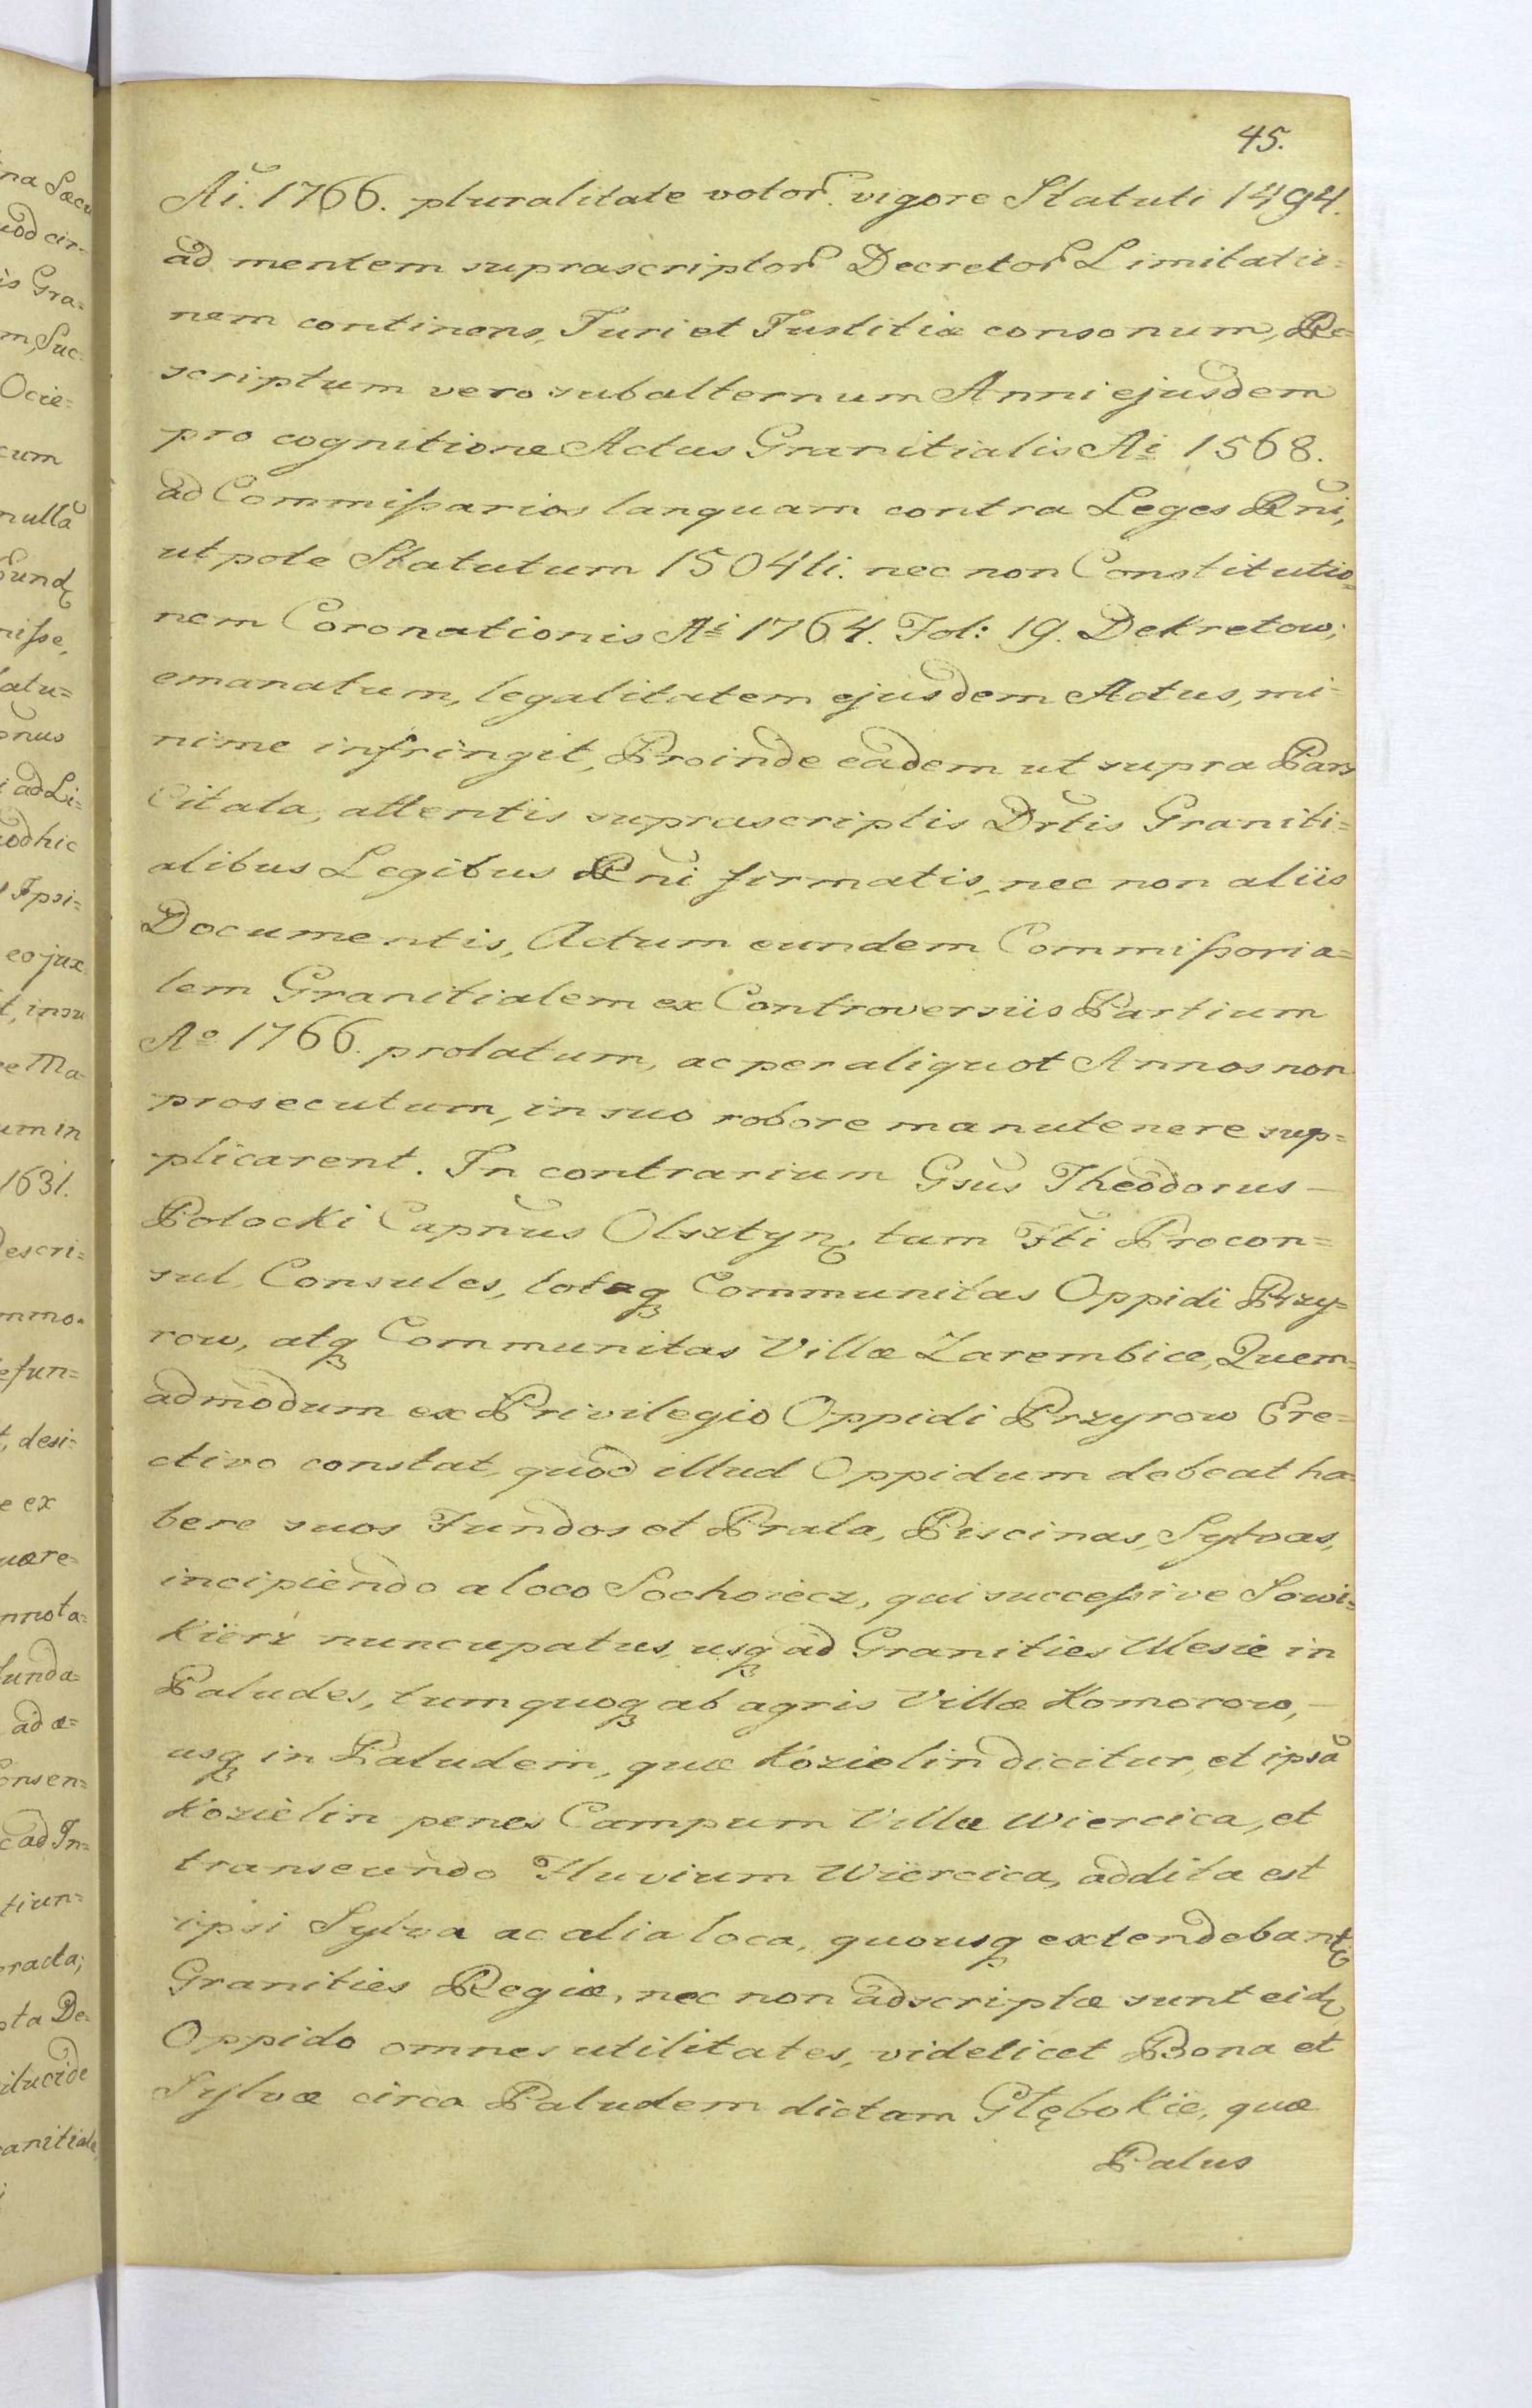 45.
Ai. 1766. pluralitate votor. vigore Statuti 1494.
ad mentem suprascriptor Decretor Limitatio=
nem continens, Juri et Justitiæ consonum, Re=
scriptum vero subalternum Anni ejusdem
pro cognitione Actus Granitialis Ai 1568.
ad Commissarios tanquam contra Leges Rni,
utpote Statutum 1504ti. nec non Constitutio=
nem Coronationis Ai 1764. Fol: 19. Dekretow,
emanatum, legalitatem ejusdem Actus, mi=
nime infringit, Proinde eadem ut supra Pars
Citata, attentis suprascriptis Drtis Graniti=
alibus Legibus Rni firmatis, nec non aliis
Documentis, Actum eundem Commissoria=
lem Granitialem ex Controversiis Partium
Ao 1766. prolatum, ac per aliquot Annos non
prosecutum, in suo robore manutenere sup=
plicarent. In contrarium Gsus Theodorus
Potocki Capnus Olsztyn. tum Fti Procon=
sul, Consules, totaq Communitas Oppidi Przy=
row, atq Communitas Villæ Zarembice, Quem=
admodum ex Privilegio Oppidi Przyrow Ere=
ctivo constat, quod illud Oppidum debeat ha=
bere suos Fundos et Prata, Piscinas, Sylvas,
incipiendo a loco Sochoriecz, qui successive Sowi=
Kierz nuncupatus, usq ad Granities Ulesie in
Paludes, tum quoq ab agris Villæ Komorow,
usq in Paludem, quæ Kozielin dicitur, et ipsa
Kozielin penes Campum Villæ Wiercica, et
transeundo Fluvium Wiercica, addita est
ipsi Sylva ac alia loca, quousq extendebant
Granities Regiæ, nec non adscriptæ sunt eid
Oppido omnes utilitates, videlicet Bona et
Sylvæ circa Paludem dictam GłęboKie, quæ
Palus